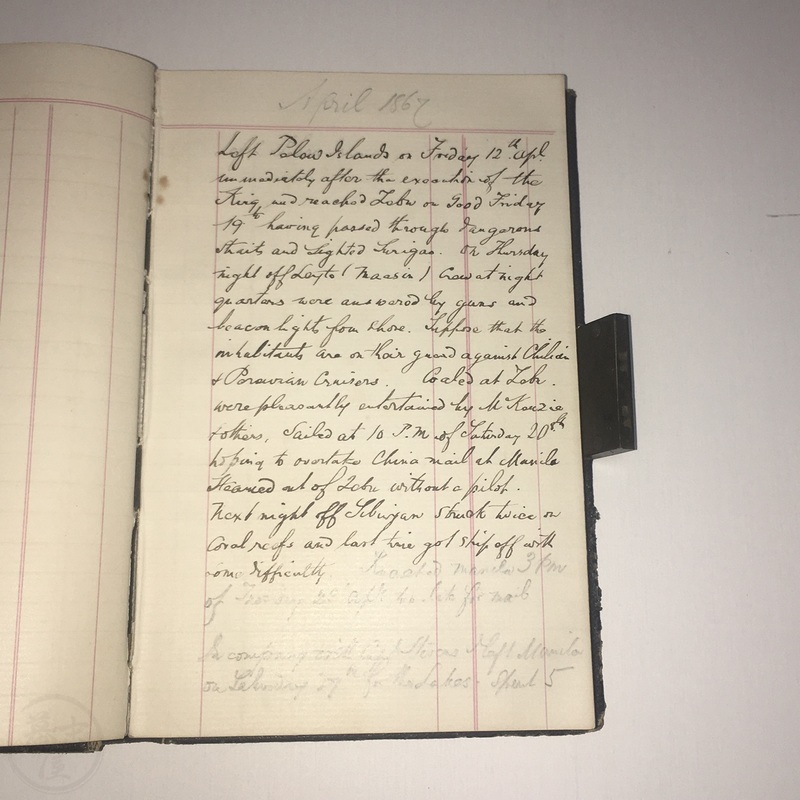 April 1867
Left Pelew Islands on Friday 12th Apl.
immediately after the execution of the
King, and reached Zebu on Good Friday
19th having passed through dangerous
straits and sighted Surigao. On Thursday
night off Leyte (Maasin) Crew at night
quarters were answered by guns and
beacon lights from shore. Suppose that the
inhabitants are on their guard against Chilian
& Peruvian Cruisers. Coaled at Zebu.
were pleasantly entertained by McKenzie
& others, Sailed at 10 P.M. of Saturday 20th
hoping to overtake China mail at Manila
Steamed out of Zebu without a pilot.
Next night off Sibuyan struck twice on
Coral reefs and last time got ship off with
some difficulty. Reached Manila 3 Pm
of 23d Apl. too late for mail
In company with Capt. I left Manila
on 27th for the Lakes. Spent 5